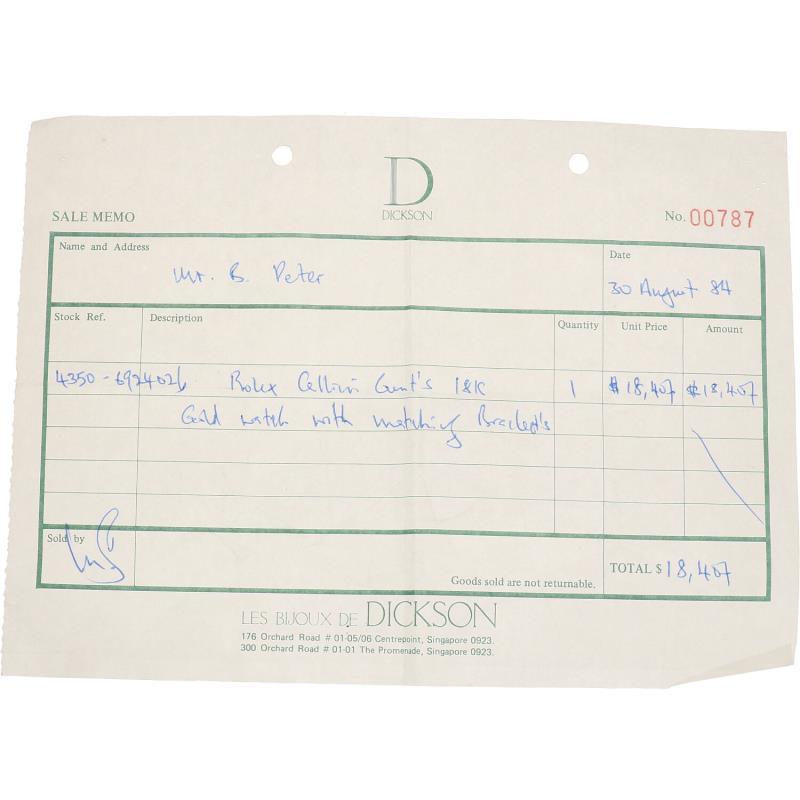 D
DICKSON
SALE MEMO
No. 00787
Name and Address
Mr. B. Peter
Date
30 August 84
Stock Ref. Description Quantity Unit Price Amount
4350-6924026 Rolex Cellini Gent's 18K 1 $18,407 $18,407
Gold watch with matching Bracelet's
Sold by
Goods sold are not returnable.
TOTAL $18,407
LES BIJOUX DE DICKSON
176 Orchard Road # 01-05/06 Centrepoint, Singapore 0923.
300 Orchard Road # 01-01 The Promenade, Singapore 0923.